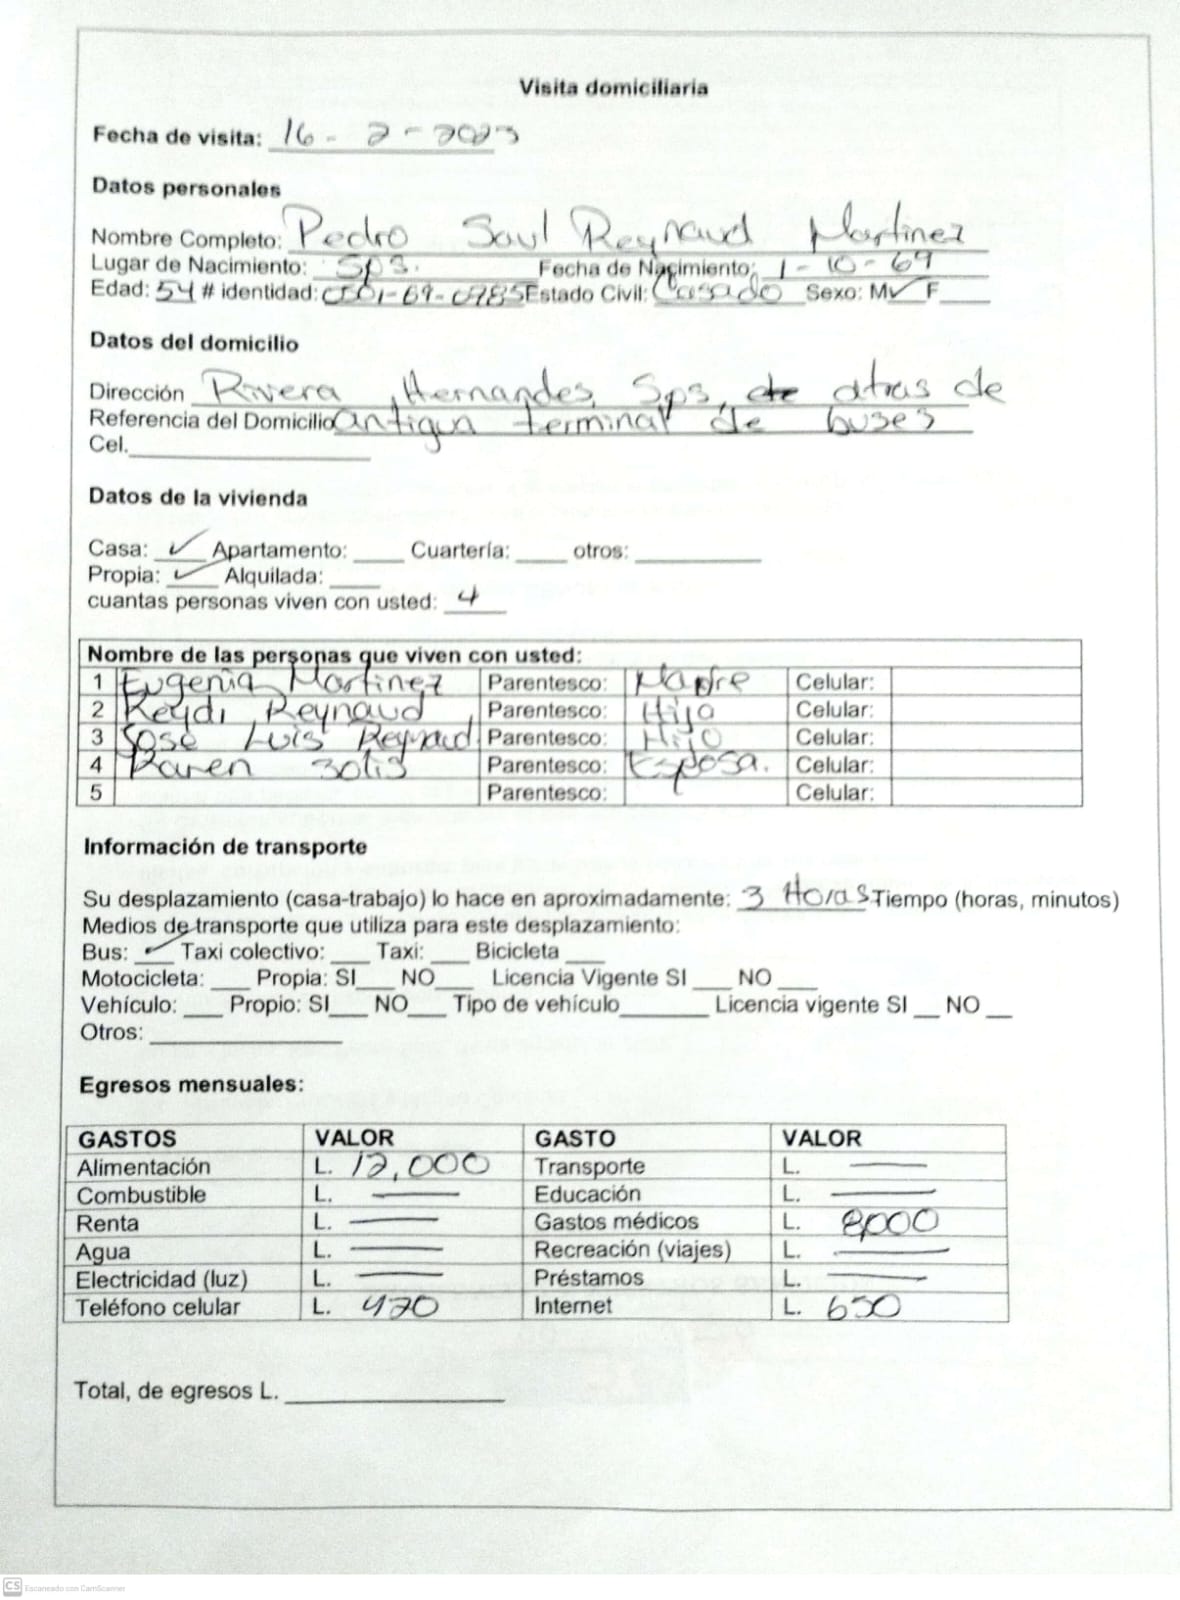 Visita domiciliaria
Fecha de visita: 16 - 2 - 2023
Datos personales
Nombre Completo: Pedro Saul Reynaud Martinez
Lugar de Nacimiento: Sps. Fecha de Nacimiento: 1 - 10 - 69
Edad: 54 # identidad: 0501-69-0785 Estado Civil: Casado Sexo: M ✓ F
Datos del domicilio
Dirección Rivera Hernandes, Sps, atras de
Referencia del Domicilio antigua terminal de buses
Cel.
Datos de la vivienda
Casa: ✓ Apartamento: Cuartería: otros:
Propia: ✓ Alquilada:
cuantas personas viven con usted: 4
Nombre de las personas que viven con usted:
1 Eugenia Martinez Parentesco: Madre Celular:
2 Keydi Reynaud Parentesco: Hija Celular:
3 Jose Luis Reynaud Parentesco: Hijo Celular:
4 Karen Solis Parentesco: Esposa. Celular:
5 Parentesco: Celular:
Información de transporte
Su desplazamiento (casa-trabajo) lo hace en aproximadamente: 3 Horas Tiempo (horas, minutos)
Medios de transporte que utiliza para este desplazamiento:
Bus: ✓ Taxi colectivo: Taxi: Bicicleta
Motocicleta: Propia: SI NO Licencia Vigente SI NO
Vehículo: Propio: SI NO Tipo de vehículo Licencia vigente SI NO
Otros:
Egresos mensuales:
GASTOS VALOR GASTO VALOR
Alimentación L. 12,000 Transporte L. —
Combustible L. — Educación L. —
Renta L. — Gastos médicos L. 8,000
Agua L. — Recreación (viajes) L. —
Electricidad (luz) L. — Préstamos L. —
Teléfono celular L. 420 Internet L. 650
Total, de egresos L.
CS Escaneado con CamScanner